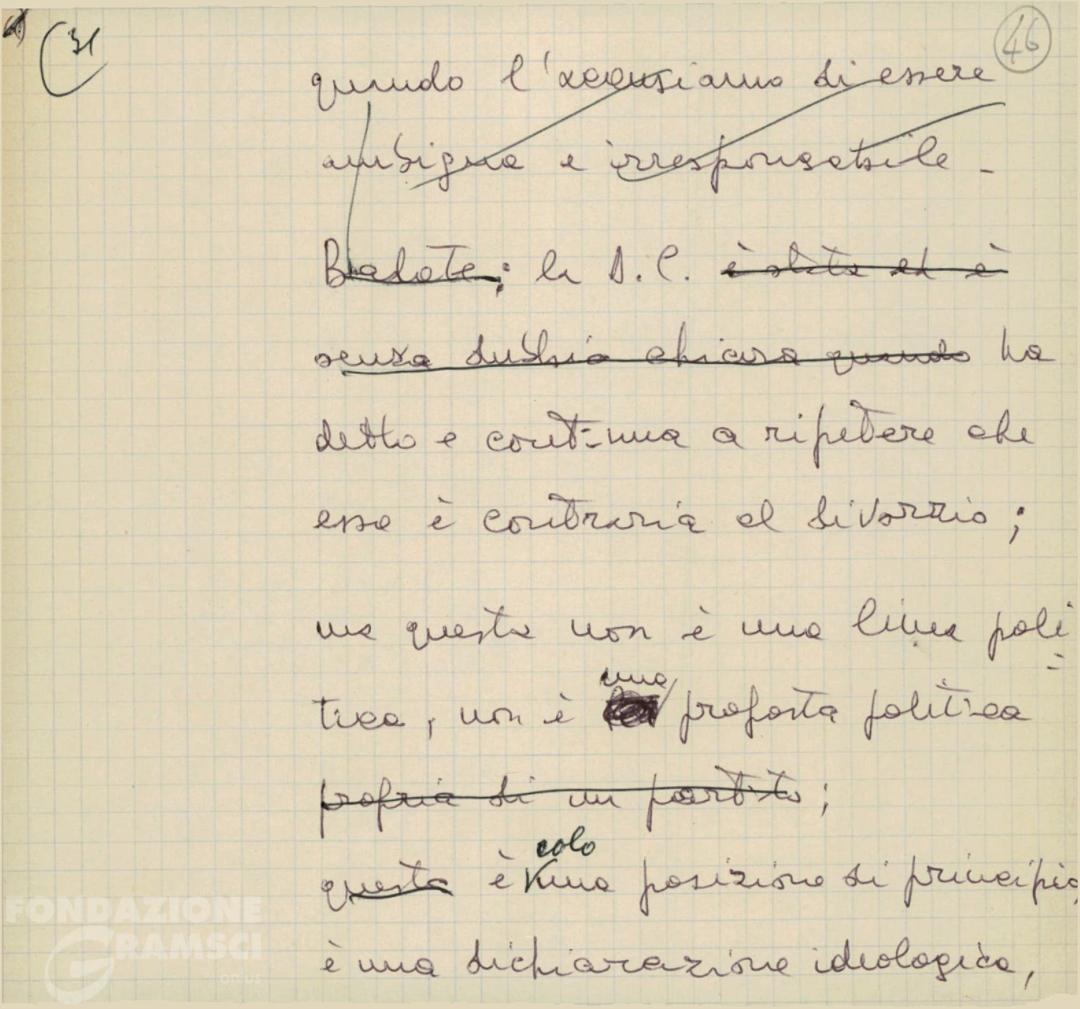 31
46
quando l'accusiamo di essere
ambigua e irresponsabile -
Badate; la D.C. è stata ed è
senza dubbio chiara quando ha
detto e continua a ripetere che
essa è contraria al divorzio;
ma questa non è una linea poli=
tica, non è una proposta politica
propria di un partito;
questa è solo una posizione di principio,
è una dichiarazione ideologica,
FONDAZIONE
GRAMSCI